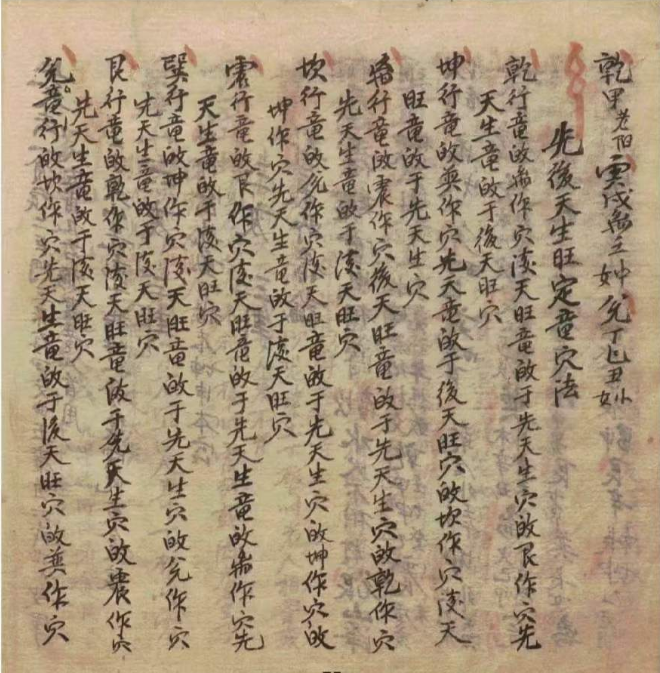 乾甲老阳寅戌离壬 兑丁巳丑
先後天生旺定竜穴法
乾行竜皈离作穴後天旺竜皈于先天生穴皈艮作穴先
天生竜皈于後天旺穴
坤行竜皈巽作穴先天竜皈于後天旺穴皈坎作穴後天
旺竜皈于先天生穴
离行竜皈震作穴後天旺竜皈于先天生穴皈乾作穴
先天生竜皈于後天旺穴
坎行竜皈兑作穴後天旺竜皈于先天生穴皈坤作穴皈
坤作穴先天生竜皈于後天旺穴
震行竜皈艮作穴後天旺竜皈于先天生竜皈离作穴先
天生竜皈于後天旺穴
巽行竜皈坤作穴後天旺竜皈于先天生穴皈兑作穴
先天生竜皈于後天旺穴
艮行竜皈乾作穴後天旺竜皈于先天生穴皈震作穴
先天生竜皈于後天旺穴
兑竜行皈坎作穴先天生竜皈于後天旺穴皈巽作穴